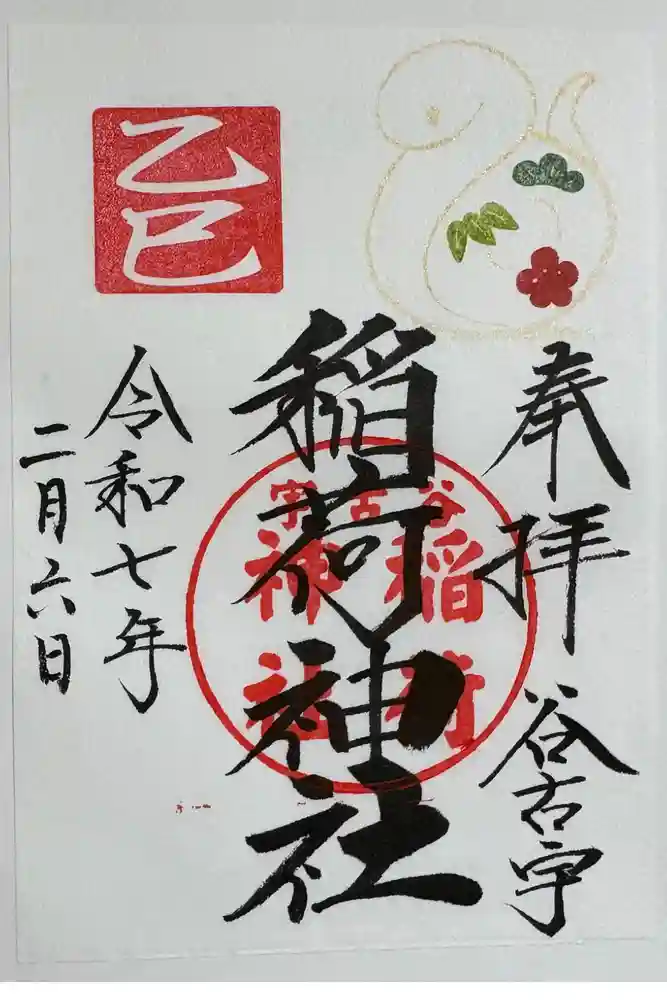 奉拝 谷古宇
稲荷神社
谷古宇
稲荷
神社
乙巳
令和七年
二月六日